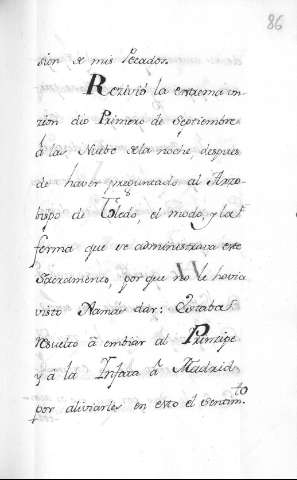 86
sion de mis Pecados.
Rezivió la extrema un
zion dia Primero de Septiembre
à las Nuebe dela noche, despues
de haver preguntado al Arzo-
bispo de Toledo, el modo, y la
forma que se administrava este
Sacramento, por que no le havia
visto Jamás dar: Estaba
resuelto à embiar al Principe
y à la Infata à Madrid
por aliviarles en esto el Sentim.to